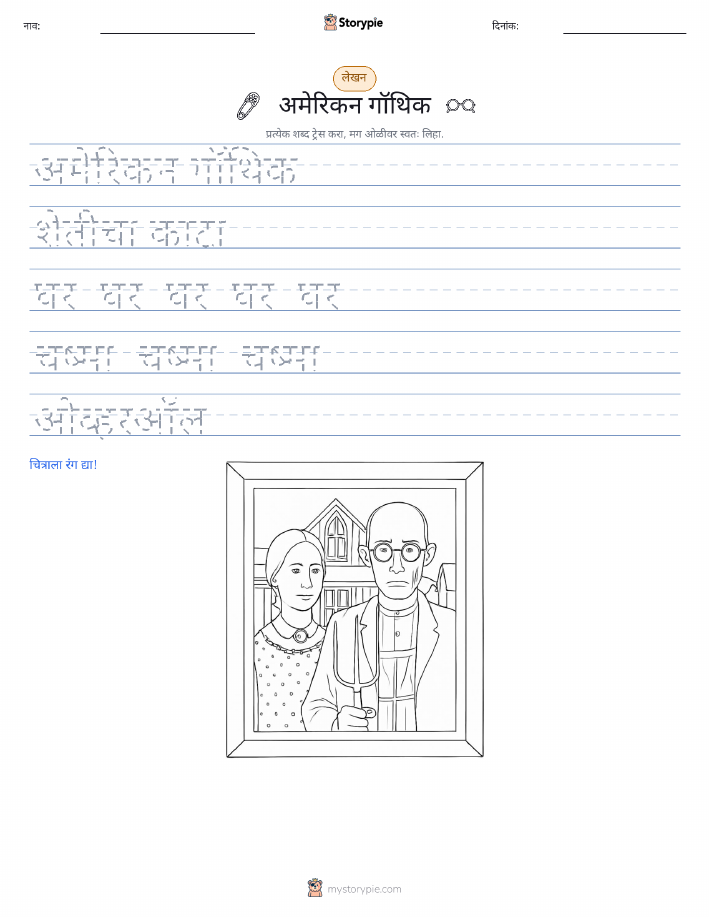 नाव:
Storypie
दिनांक:
लेखन
अमेरिकन गॉथिक
प्रत्येक शब्द ट्रेस करा, मग ओळीवर स्वतः लिहा.
अमेरिकन गॉथिक
शेतीचा काटा
घर घर घर घर घर
चष्मा चष्मा चष्मा
ओव्हरऑल
चित्राला रंग द्या!
mystorypie.com